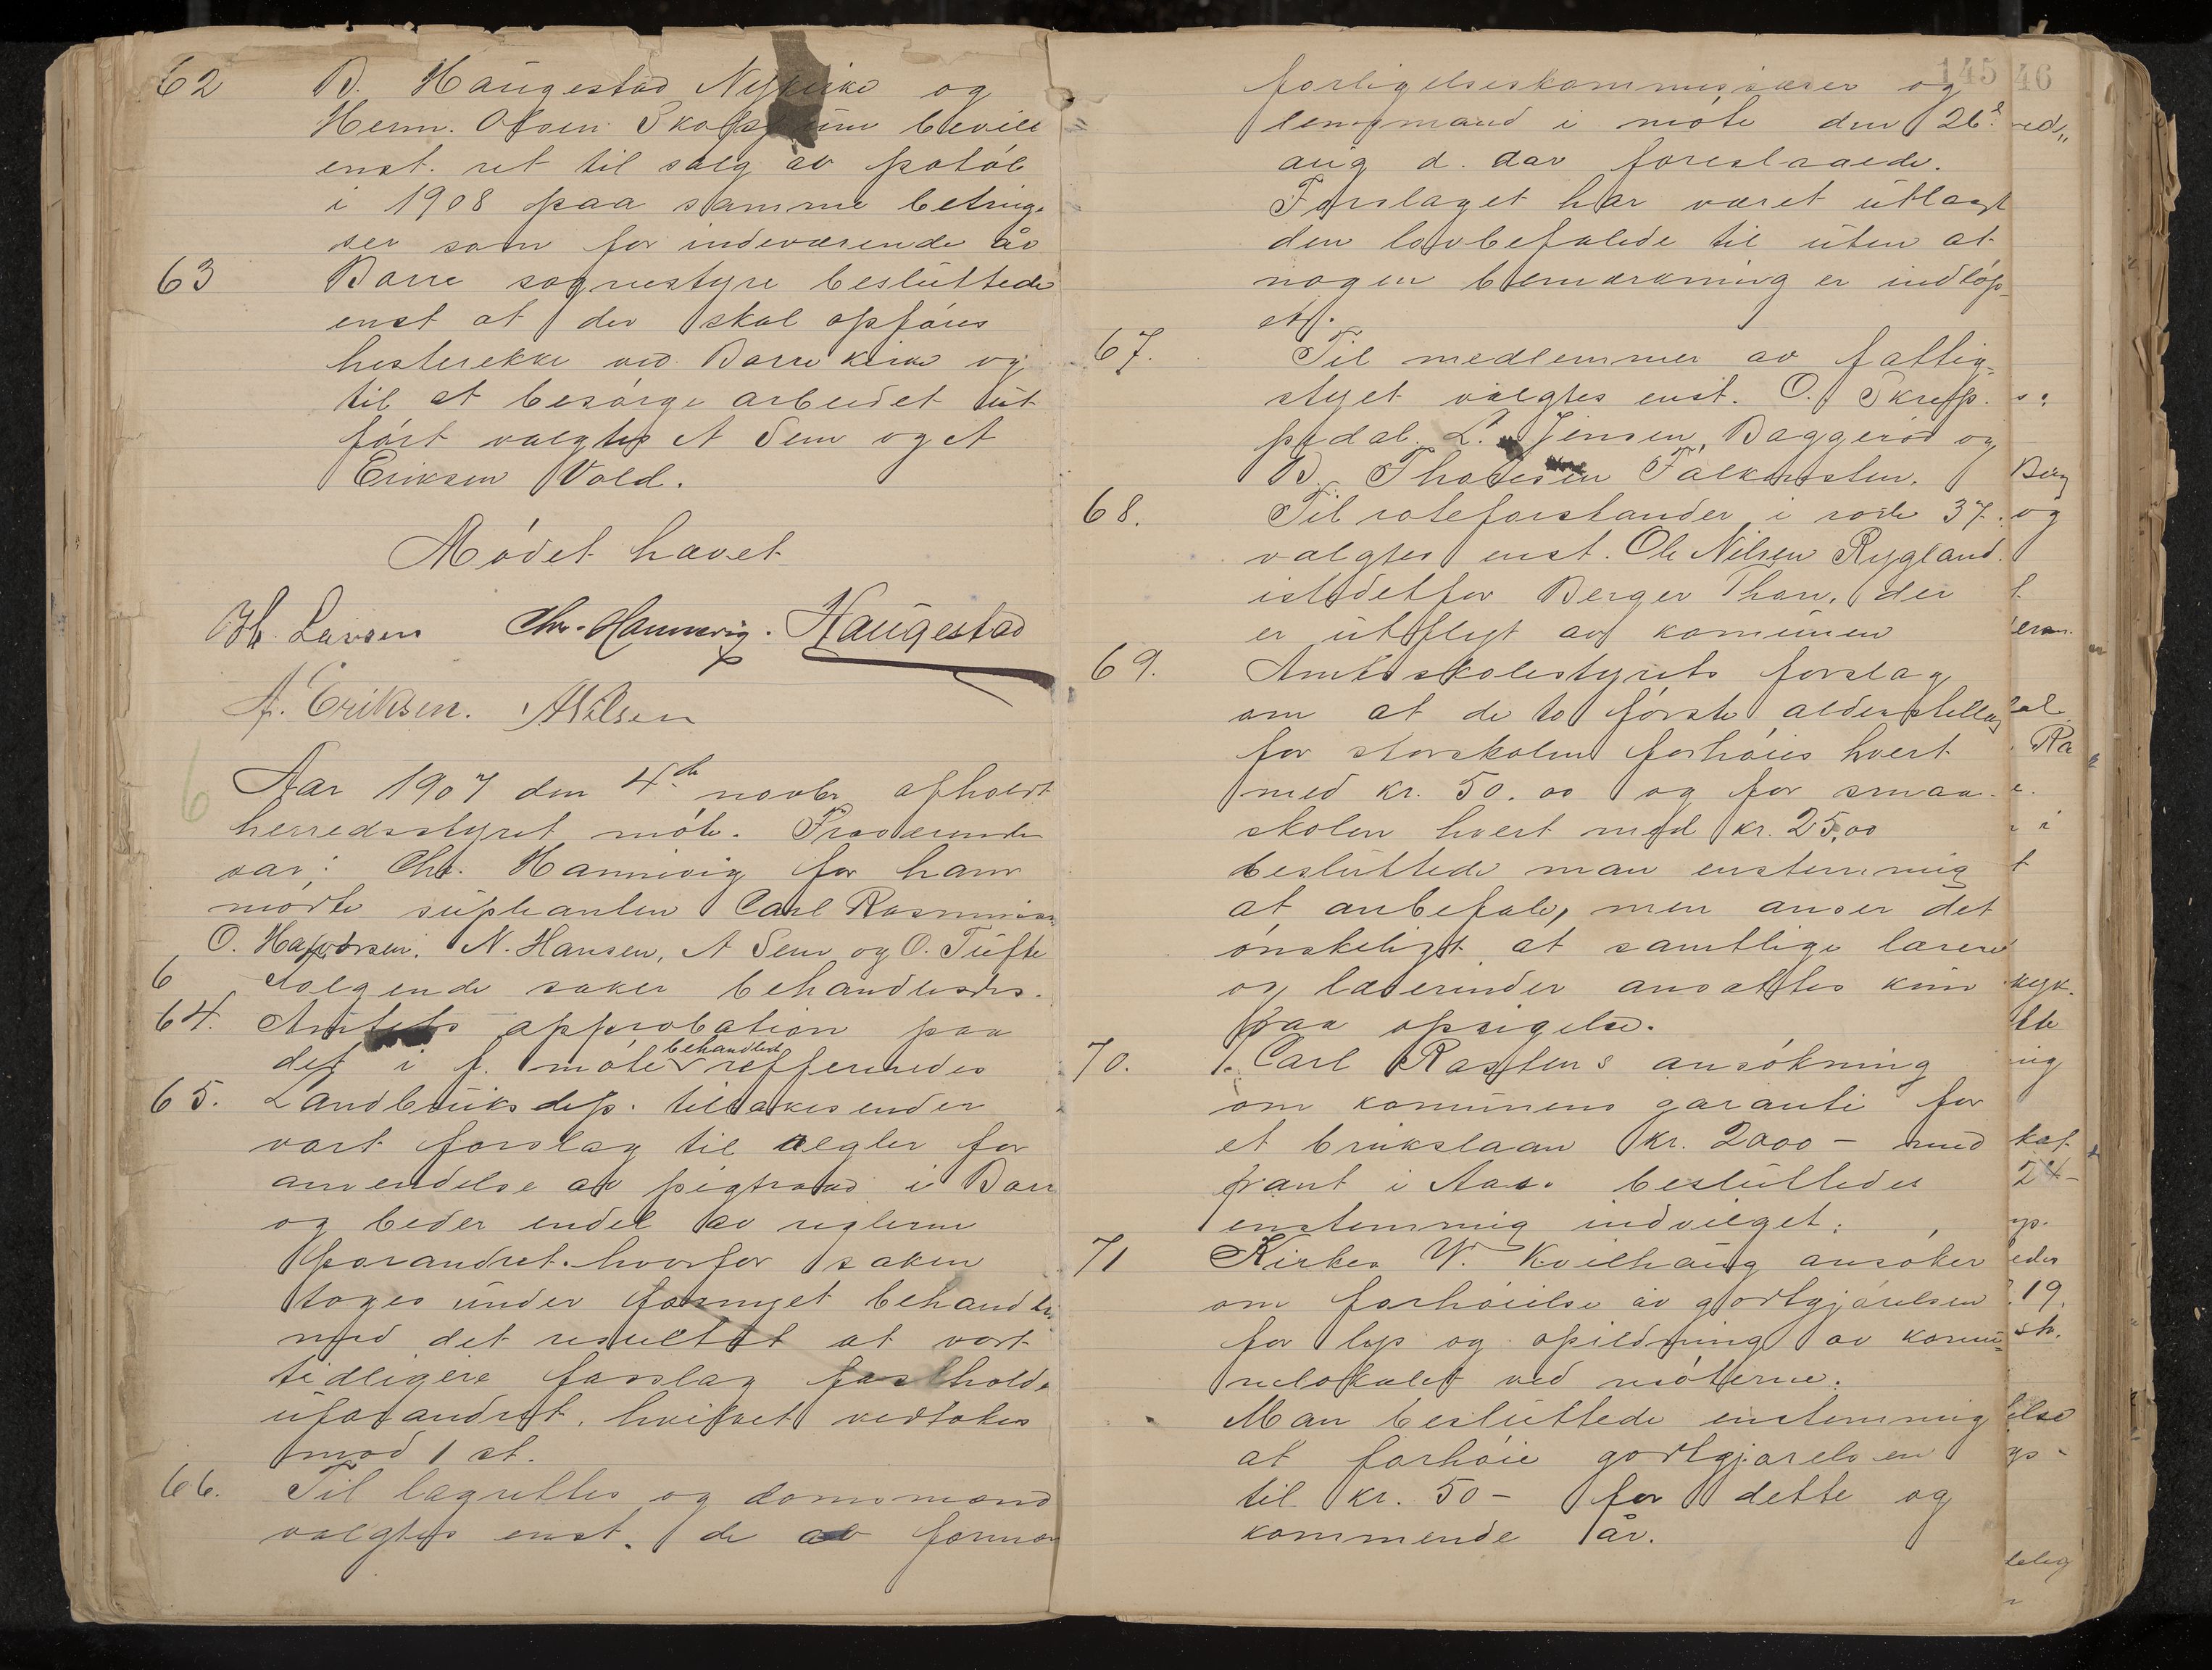 62 B. Haugestad Nykirke og
Herm. Olsen Skop um bevill
enst. ret til salg av potöl
i 1908 paa samme beting.
ser som for indeværende år
63 Borre sognestyre besluttede
enst at der skal opføres
hesterekke ved Borre kirke og
til at besørge arbeidet ut
ført valgtes A Sem og A
Eriksen Vold.
Mødet hævet
H. Larsen Chr. Hannevig. Haugestad
A. Eriksen. A Nilsen
Aar 1907 den 4de novbr afholdt
herredsstyret møte. Fraværende
var: Chr. Hannevig for ham
mødte supleanten Carl Rasmussen
O. Halvorsen, N. Hansen, A Sem og O. Tufte
6 Følgende saker behandledes.
64. Amtets approbation paa
det i f. møte behandlede refferertedes
65. Landbruksdep. tilbakesender
vort forslag til regler for
anvendelse av pigtraad i Borre
og beder endel av reglerne
forandret. hvorfor saken
toges under fornyet behandl.
med det resultat at vort
tidligere forslag fastholdes
uforandret, hvilket vedtokes
mod 1 st.
66. Til lagrettes og domsmænd
valgtes enst. de av forman
145
forligelseskommissærer og
lensmand i møte den 26de
aug d. aar foreslaaede.
Forslaget har været utlagt
den lovbefalede tid uten at
nogen bemærkning er indløp
et.
67. Til medlemmer av fattig-
styret valgtes enst. O. Skrep-
pedal. L. Jensen, Baggerød og
B. Thoresen Falkensten.
68. Til roteforstander i rode 37.
valgtes enst. Ole Nilsen Rygland
istedetfor Berger Thon, der
er utflyt av komunen
69. Amtsskolestyrets forslag
om at de to første alderstillæg
for storskolen forhøies hvert
med kr. 50.00 og for smaa-
skolen hvert med kr. 25,00
besluttede man enstemmig
at anbefale, men anser det
ønskeligt at samtlige lærere
og lærerinder ansættes kun
paa opsigelse.
70. Carl Rastens ansøkning
om komunens garanti for
et brukslaan kr. 2000 – med
pant i Aas. besluttedes
enstemmig indvilget.
71 Kirkes. W. Kvilhaug ansøker
om forhøielse av godtgjørelsen
for lys og opildning av komu-
nelokalet ved møterne.
Man besluttede enstemmig
at forhøie godtgjørelsen
til kr. 50 – for dette og
kommende år.
46